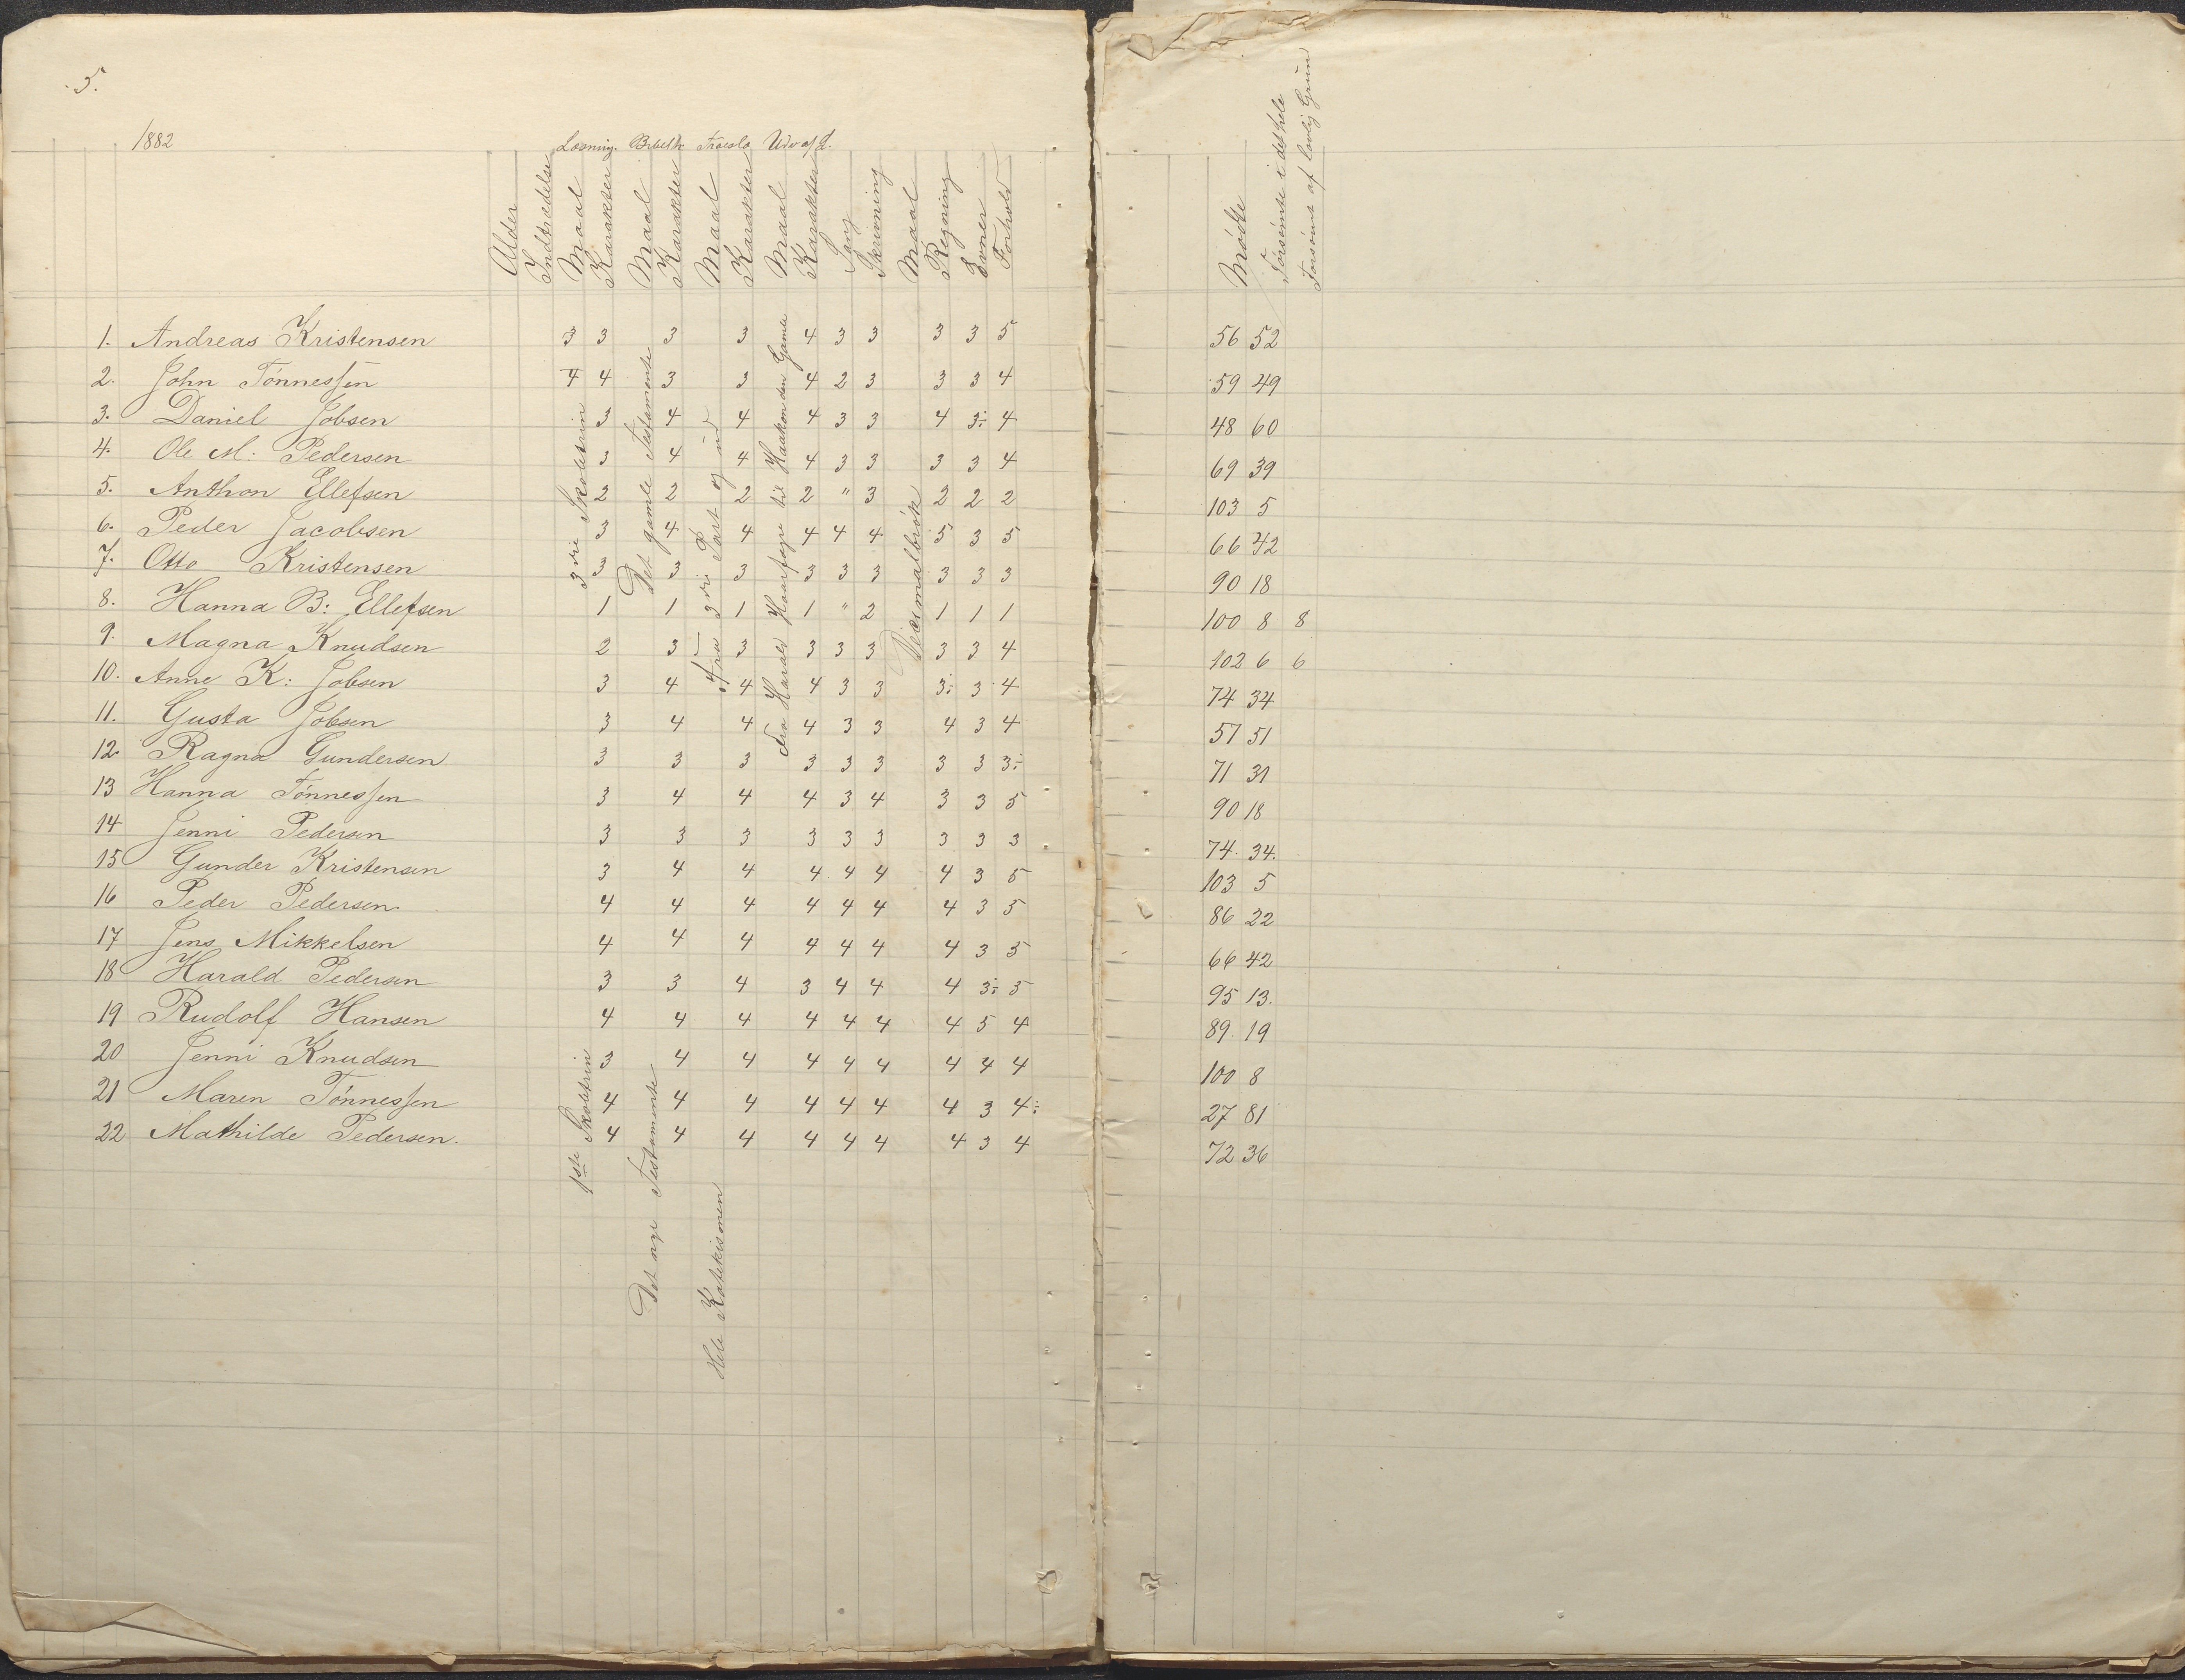 5.
1882
Læsning. Bibelh Troesla Udv af L.
Alder
Indtrædelse
Maal
Karakter
Maal
Karakter
Maal
Karakter
Maal
Karakter
Sang
Skrivning
Maal
Regning
Evner
Forhold
Mødte
Forsømte i det hele
Forsømt af lovlig Grun
1. Andreas Kristensen 3 3 3 3 4 3 3 3 3 5 56 52
2. John Tønnessen 4 4 3 3 4 2 3 3 3 4 59 49
3. Daniel Jobsen 3 4 4 4 3 3 4 3÷ 4 48 60
4. Ole M: Pedersen 3 4 4 4 3 3 3 3 4 69 39
5. Anthon Ellefsen 2 2 2 2 " 3 2 2 2 103 5
6. Peder Jacobsen 3 4 4 4 4 4 5 3 5 66 42
7. Otto Kristensen 3 3 3 3 3 3 3 3 3 90 18
8. Hanna B: Ellefsen 1 1 1 1 " 2 1 1 1 100 8 8
9. Magna Knudsen 2 3 3 3 3 3 3 3 4 102 6 6
10. Anne K: Jobsen 3 4 4 4 3 3 3÷ 3 4 74 34
11. Gusta Jobsen 3 4 4 4 3 3 4 3 4 57 51
12. Ragna Gundersen 3 3 3 3 3 3 3 3 3÷ 71 31
13 Hanna Tønnessen 3 4 4 4 3 4 3 3 5 90 18
14 Jenni Pedersen 3 3 3 3 3 3 3 3 3 74. 34.
15 Gunder Kristensen 3 4 4 4 4 4 4 3 5 103 5
16 Peder Pedersen. 4 4 4 4 4 4 4 3 5 86 22
17 Jens Mikkelsen 4 4 4 4 4 4 4 3 5 66 42
18 Harald Pedersen 3 3 4 3 4 4 4 3÷ 5 95 13.
19 Rudolf Hansen 4 4 4 4 4 4 4 5 4 89. 19
20 Jenni Knudsen 3 4 4 4 4 4 4 4 4 100 8
21 Maren Tønnessen 4 4 4 4 4 4 4 3 4÷ 27 81
22 Mathilde Pedersen. 4 4 4 4 4 4 4 3 4 72 36
3die Skoletrin
Det gamle Testamente
Fra 3die Part og ud
Fra Harald Haarfagre til Haakon den Gamle
Decimalbrøk
1ste Skoletrin
Det nye Testamente
Hele Katekismen